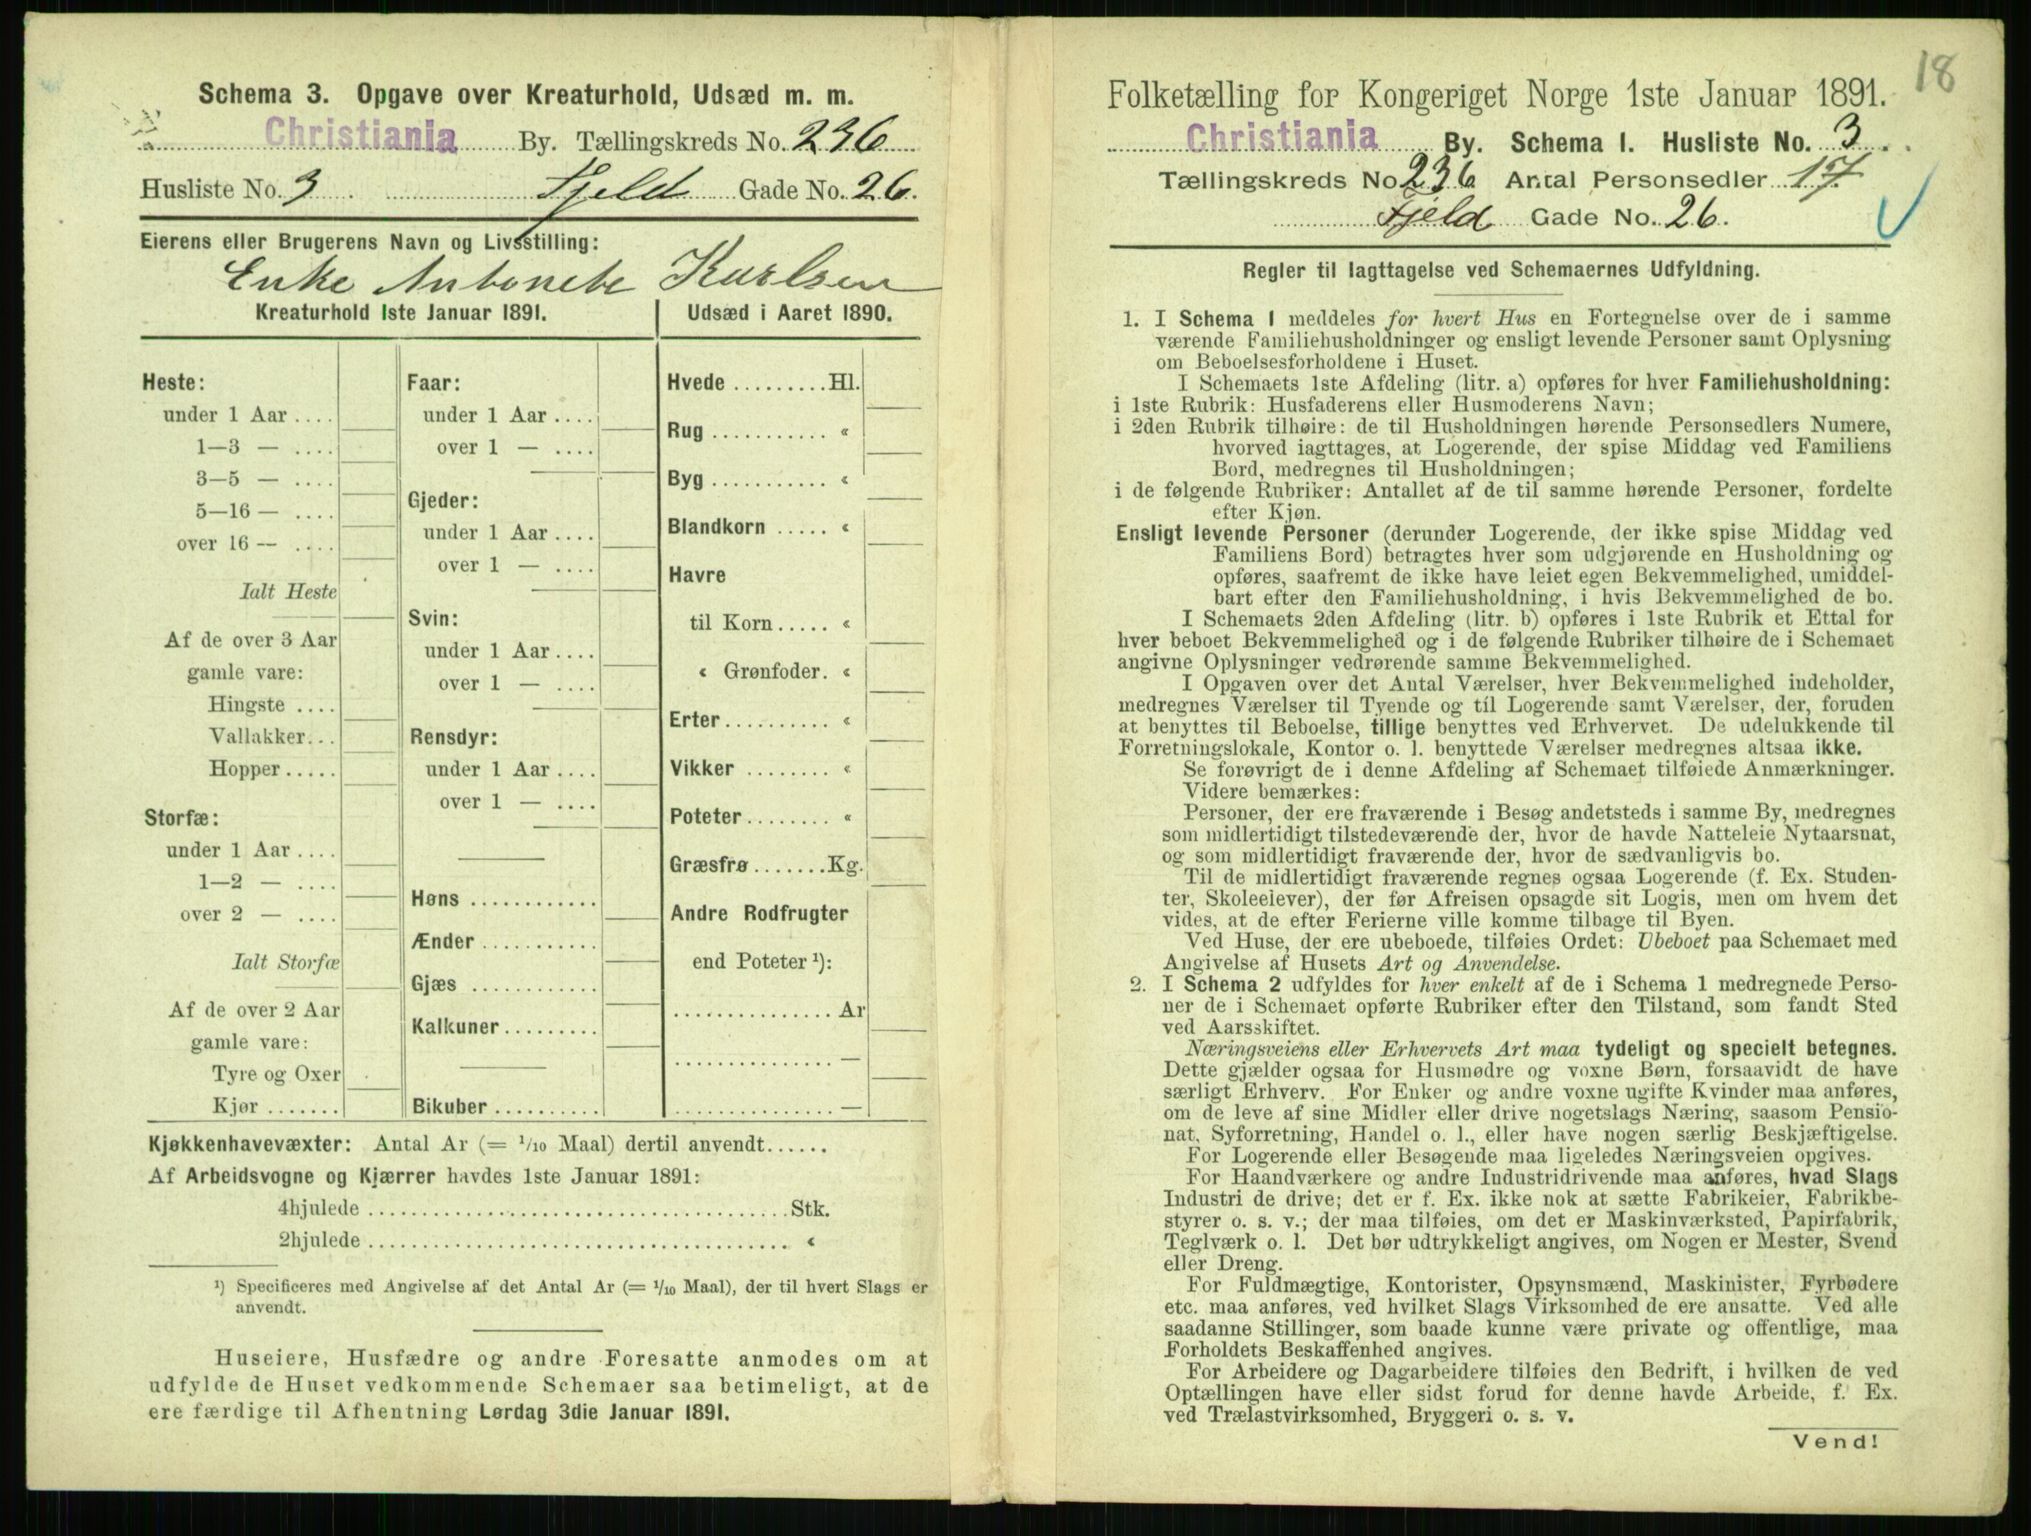 Schema 3. Opgave over Kreaturhold, Udsæd m. m.
Christiania By. Tællingskreds No. 236
Husliste No. 3 Fjeld Gade No. 26.
Eierens eller Brugerens Navn og Livsstilling:
Enke Antonete Karlsen
Kreaturhold 1ste Januar 1891.
Heste:
under 1 Aar ....
1—3 — ....
3—5 — ....
5—16 — ....
over 16 — ....
Ialt Heste
Af de over 3 Aar
gamle vare:
Hingste ....
Vallakker...
Hopper.....
Storfæ:
under 1 Aar ....
1—2 — ....
over 2 — ....
Ialt Storfæ
Af de over 2 Aar
gamle vare:
Tyre og Oxer
Kjør .......
Faar:
under 1 Aar ....
over 1 — ....
Gjeder:
under 1 Aar ....
over 1 — ....
Svin:
under 1 Aar ....
over 1 — ....
Rensdyr:
under 1 Aar ....
over 1 — ....
Høns ............
Ænder ...........
Gjæs ............
Kalkuner.........
Bikuber ..........
Udsæd i Aaret 1890.
Hvede .........Hl.
Rug ........... «
Byg ........... «
Blandkorn ..... «
Havre
til Korn ..... «
« Grønfoder. «
Erter ......... «
Vikker ........ «
Poteter ........ «
Græsfrø .......Kg.
Andre Rodfrugter
end Poteter ¹):
............... Ar
............... —
............... —
Kjøkkenhavevæxter: Antal Ar (= 1/10 Maal) dertil anvendt......
Af Arbeidsvogne og Kjærrer havdes 1ste Januar 1891:
4hjulede ........................................Stk.
2hjulede ........................................ «
¹) Specificeres med Angivelse af det Antal Ar (= 1/10 Maal), der til hvert Slags er
anvendt.
Huseiere, Husfædre og andre Foresatte anmodes om at
udfylde de Huset vedkommende Schemaer saa betimeligt, at de
ere færdige til Afhentning Lørdag 3die Januar 1891.
18
Folketælling for Kongeriget Norge 1ste Januar 1891.
Christiania By. Schema 1. Husliste No. 3.
Tællingskreds No 236 Antal Personsedler 17
Fjeld Gade No. 26.
Regler til Iagttagelse ved Schemaernes Udfyldning.
1. I Schema 1 meddeles for hvert Hus en Fortegnelse over de i samme
værende Familiehusholdninger og ensligt levende Personer samt Oplysning
om Beboelsesforholdene i Huset.
I Schemaets 1ste Afdeling (litr. a) opføres for hver Familiehusholdning:
i 1ste Rubrik: Husfaderens eller Husmoderens Navn;
i 2den Rubrik tilhøire: de til Husholdningen hørende Personsedlers Numere,
hvorved iagttages, at Logerende, der spise Middag ved Familiens
Bord, medregnes til Husholdningen;
i de følgende Rubriker: Antallet af de til samme hørende Personer, fordelte
efter Kjøn.
Ensligt levende Personer (derunder Logerende, der ikke spise Middag ved
Familiens Bord) betragtes hver som udgjørende en Husholdning og
opføres, saafremt de ikke have leiet egen Bekvemmelighed, umiddel-
bart efter den Familiehusholdning, i hvis Bekvemmelighed de bo.
I Schemaets 2den Afdeling (litr. b) opføres i 1ste Rubrik et Ettal for
hver beboet Bekvemmelighed og i de følgende Rubriker tilhøire de i Schemaet
angivne Oplysninger vedrørende samme Bekvemmelighed.
I Opgaven over det Antal Værelser, hver Bekvemmelighed indeholder,
medregnes Værelser til Tyende og til Logerende samt Værelser, der, foruden
at benyttes til Beboelse, tillige benyttes ved Erhvervet. De udelukkende til
Forretningslokale, Kontor o. l. benyttede Værelser medregnes altsaa ikke.
Se forøvrigt de i denne Afdeling af Schemaet tilføiede Anmærkninger.
Videre bemærkes:
Personer, der ere fraværende i Besøg andetsteds i samme By, medregnes
som midlertidigt tilstedeværende der, hvor de havde Natteleie Nytaarsnat,
og som midlertidigt fraværende der, hvor de sædvanligvis bo.
Til de midlertidigt fraværende regnes ogsaa Logerende (f. Ex. Studen-
ter, Skoleelever), der før Afreisen opsagde sit Logis, men om hvem det
vides, at de efter Ferierne ville komme tilbage til Byen.
Ved Huse, der ere ubeboede, tilføies Ordet: Ubeboet paa Schemaet med
Angivelse af Husets Art og Anvendelse.
2. I Schema 2 udfyldes for hver enkelt af de i Schema 1 medregnede Perso-
ner de i Schemaet opførte Rubriker efter den Tilstand, som fandt Sted
ved Aarsskiftet.
Næringsveiens eller Erhvervets Art maa tydeligt og specielt betegnes.
Dette gjælder ogsaa for Husmødre og voxne Børn, forsaavidt de have
særligt Erhverv. For Enker og andre voxne ugifte Kvinder maa anføres,
om de leve af sine Midler eller drive nogetslags Næring, saasom Pensio-
nat, Syforretning, Handel o. l., eller have nogen særlig Beskjæftigelse.
For Logerende eller Besøgende maa ligeledes Næringsveien opgives.
For Haandværkere og andre Industridrivende maa anføres, hvad Slags
Industri de drive; det er f. Ex. ikke nok at sætte Fabrikeier, Fabrikbe-
styrer o. s. v.; der maa tilføies, om det er Maskinværksted, Papirfabrik,
Teglværk o. l. Det bør udtrykkeligt angives, om Nogen er Mester, Svend
eller Dreng.
For Fuldmægtige, Kontorister, Opsynsmænd, Maskinister, Fyrbødere
etc. maa anføres, ved hvilket Slags Virksomhed de ere ansatte. Ved alle
saadanne Stillinger, som baade kunne være private og offentlige, maa
Forholdets Beskaffenhed angives.
For Arbeidere og Dagarbeidere tilføies den Bedrift, i hvilken de ved
Optællingen have eller sidst forud for denne havde Arbeide, f. Ex.
ved Trælastvirksomhed, Bryggeri o. s. v.
Vend!